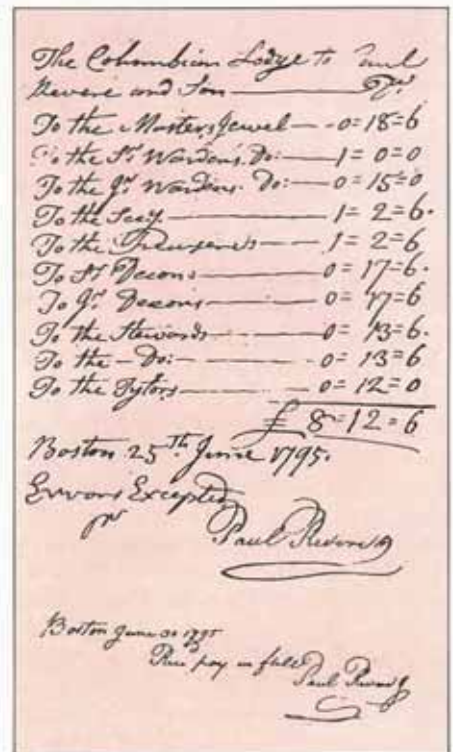 The Columbian Lodge to Paul
Revere and Son — Dr.
To the Masters Jewel — 0=18=6
To the Sr. Wardens. Do: — 1=0=0
To the Jr. Wardens. Do: — 0=15=0
To the Secy. — 1=2=6.
To the Treasurers — 1=2=6
To Sr. Decons — 0=17=6.
To Jr. Decons — 0=17=6
To the Stewards — 0=13=6.
To the — Do: — 0=13=6
To the Tylors — 0=12=0
£ 8=12=6
Boston 25th June 1795.
Errors Excepted
pr
Paul Revere
Boston June 30 1795
Rec pay in full
Paul Revere